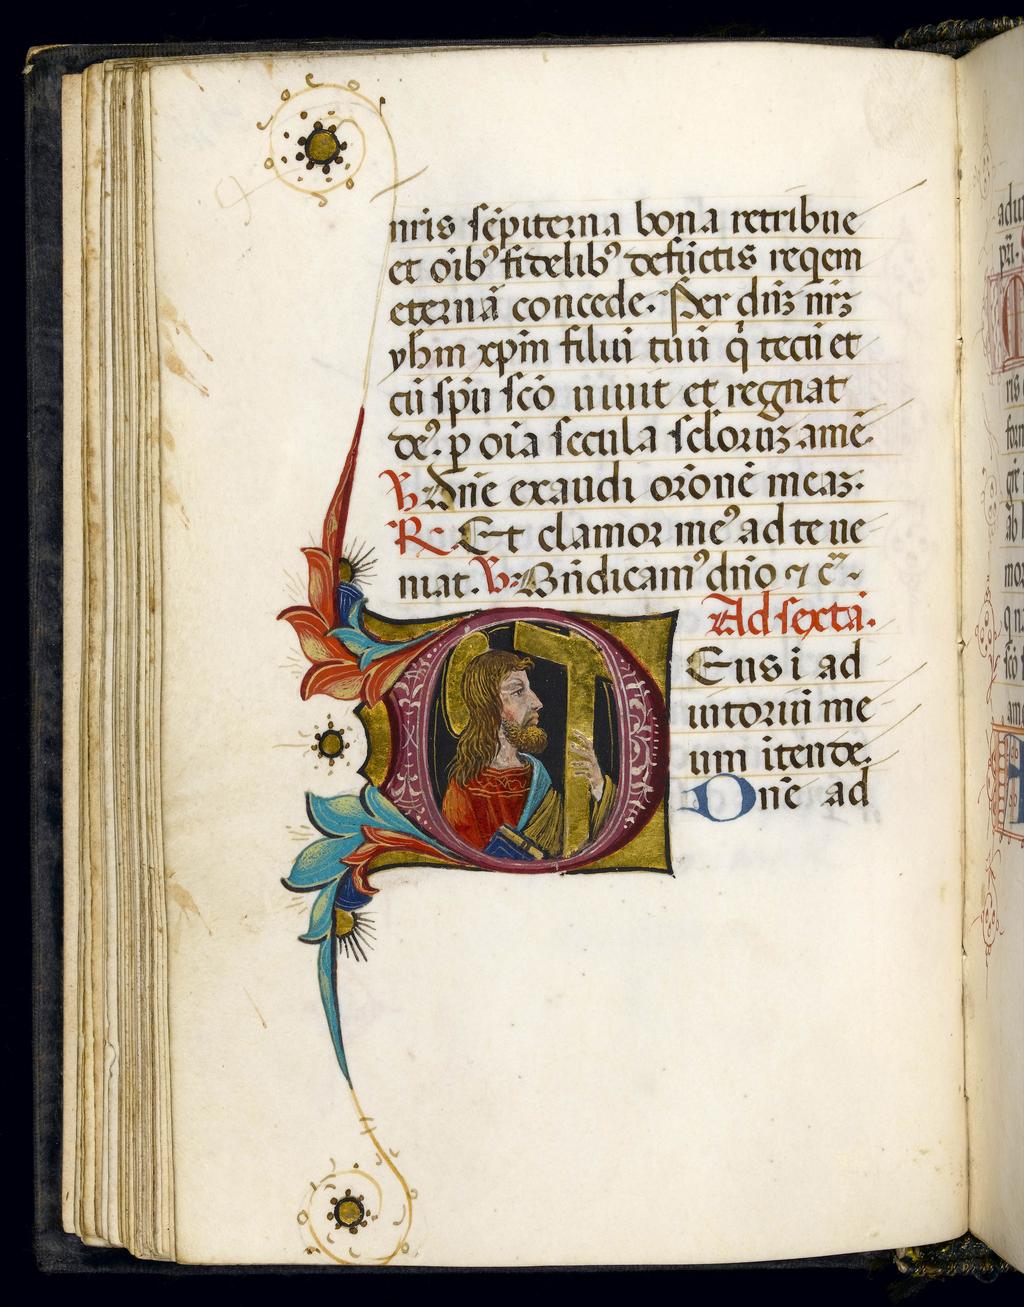 nr̄is sēpiterna bona retribue
et oībꝰ fidelibꝰ defūctis reqem
eternā concede. Per dn̄ꝫ nr̄ꝫ
yhm xp̄m filiū tuū q̄ tecū et
cū sp̄u scō uiuit et regnat
deꝰ. ꝑ oīa secula sclōruꝫ amē.
℣ Dn̄e exaudi orōnē meaꝫ.
℟. Et clamor meꝰ ad te ue
niat. ℣. Bn̄dicamꝰ dn̄o ⁊ c̄.
Ad sextā.
Deus ī ad
iutoriū me
um ītende.
Dn̄e ad